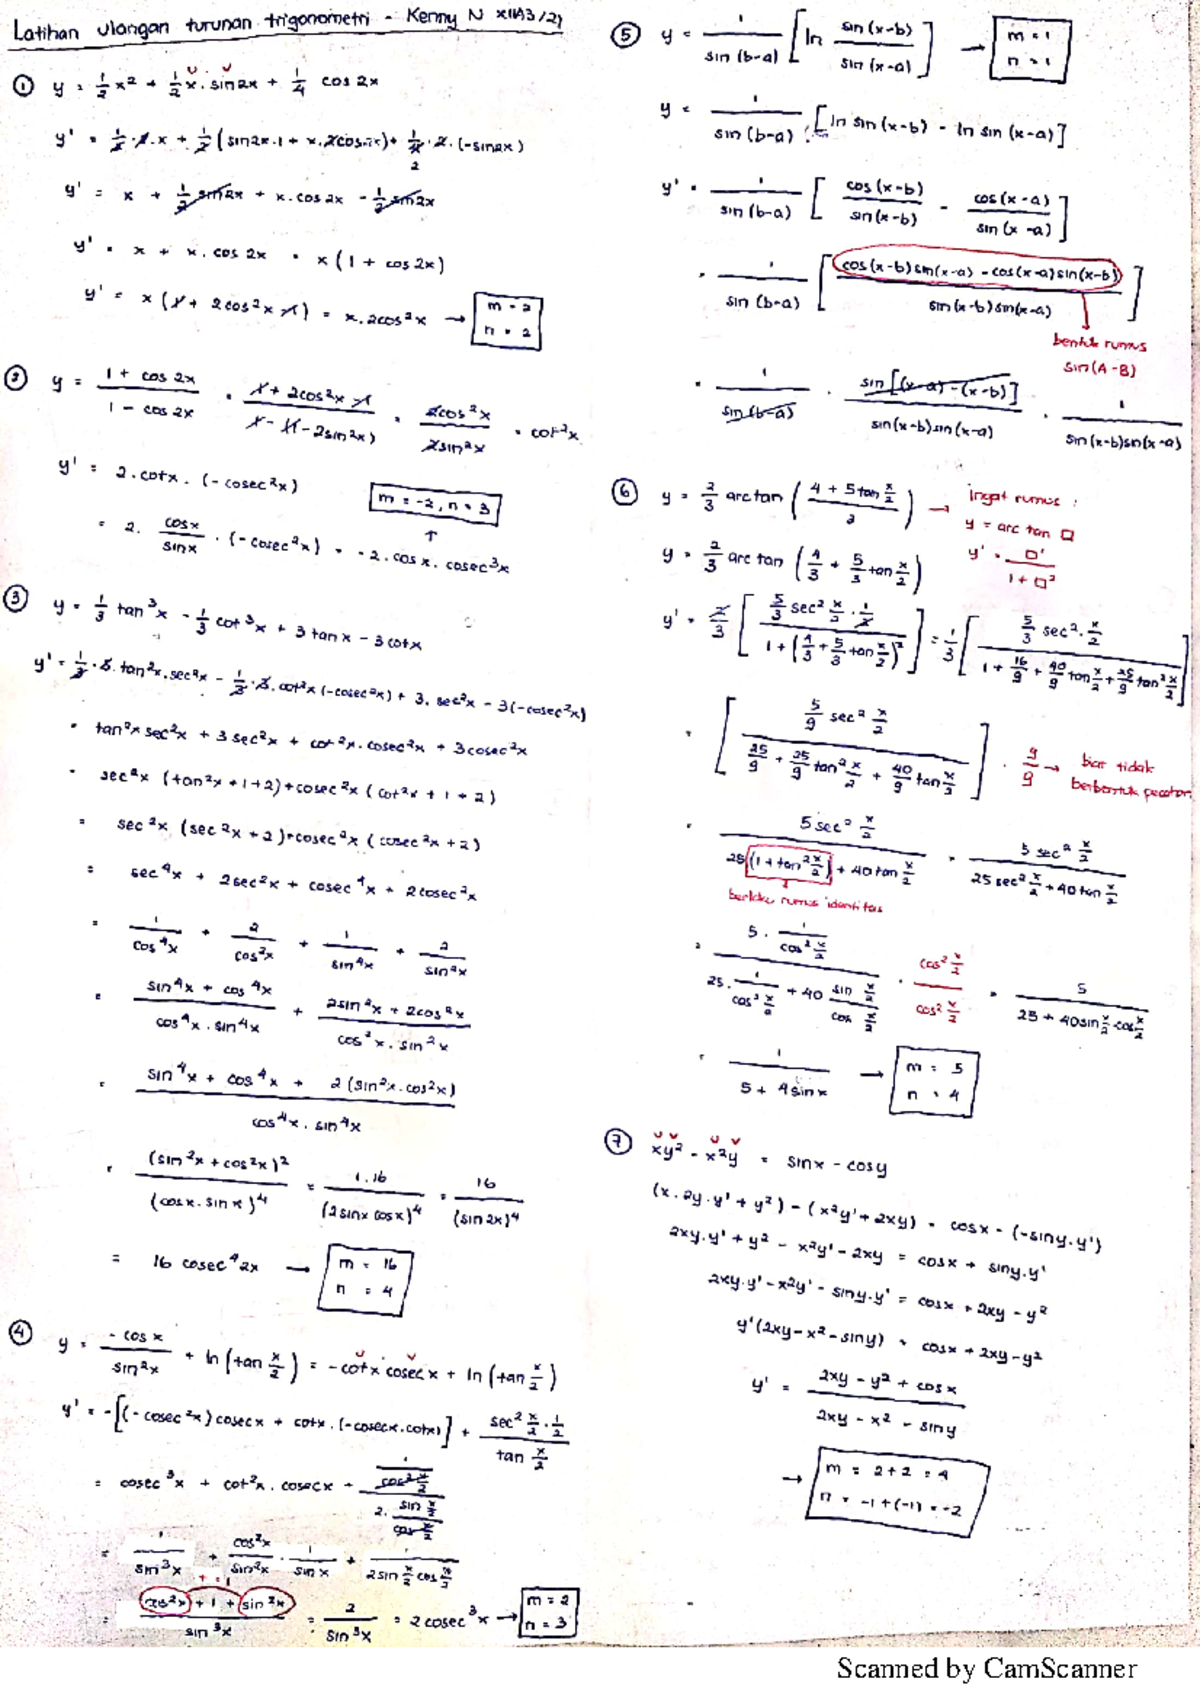 Latihan ulangan turunan trigonometri - Kenny N XIIA3/21
① y = 1/2 x² + 1/2 x . sin2x + 1/4 cos 2x
y' = 1/2 . 2 . x + 1/2 (sin2x . 1 + x . 2cos2x) + 1/4 . 2 . (-sin2x)
y' = x + 1/2 sin2x + x . cos 2x - 1/2 sin2x
y' = x + x . cos 2x = x (1 + cos 2x)
y' = x (1 + 2cos²x - 1) = x . 2cos²x → m = 2
n = 2
② y = (1 + cos 2x)/(1 - cos 2x) = (1 + 2cos²x - 1)/(1 - (1 - 2sin²x)) = 2cos²x/2sin²x = cot²x
y' = 2 . cotx . (-cosec²x)
m = -2, n = 3
= 2 . cosx/sinx . (-cosec²x) = -2 . cos x . cosec³x
③ y = 1/3 tan³x - 1/3 cot³x + 3 tan x - 3 cotx
y' = 1/3 . 3 . tan²x . sec²x - 1/3 . 3 . cot²x (-cosec²x) + 3 . sec²x - 3 (-cosec²x)
= tan²x sec²x + 3 sec²x + cot²x . cosec²x + 3 cosec²x
= sec²x (tan²x + 1 + 2) + cosec²x (cot²x + 1 + 2)
= sec²x (sec²x + 2) + cosec²x (cosec²x + 2)
= sec⁴x + 2sec²x + cosec⁴x + 2cosec²x
= 1/cos⁴x + 2/cos²x + 1/sin⁴x + 2/sin²x
= (sin⁴x + cos⁴x)/(cos⁴x . sin⁴x) + (2sin²x + 2cos²x)/(cos²x . sin²x)
= (sin⁴x + cos⁴x + 2(sin²x . cos²x))/(cos⁴x . sin⁴x)
= (sin²x + cos²x)²/(cosx . sinx)⁴ = 1.16/(2sinx cosx)⁴ = 16/(sin2x)⁴
= 16 cosec⁴2x → m = 16
n = 4
④ y = -cos x/sin²x + ln (tan x/2) = -cotx cosec x + ln (tan x/2)
y' = -[(-cosec²x) cosec x + cotx . (-cosecx . cotx)] + (sec² x/2 . 1/2)/(tan x/2)
= cosec³x + cot²x . cosecx + (1/(cos² x/2))/(2 . (sin x/2)/(cos x/2))
= 1/sin³x + cos²x/sin²x . 1/sin x + 1/(2sin x/2 cos x/2)
+ = 1
= (cos²x + 1 + sin²x)/sin³x = 2/sin³x = 2 cosec³x → m = 2
n = 3
⑤ y = 1/sin(b-a) [ln sin(x-b)/sin(x-a)] → m = 1
n = 1
y = 1/sin(b-a) [ln sin(x-b) - ln sin(x-a)]
y' = 1/sin(b-a) [cos(x-b)/sin(x-b) - cos(x-a)/sin(x-a)]
= 1/sin(b-a) [(cos(x-b)sin(x-a) - cos(x-a)sin(x-b))/(sin(x-b)sin(x-a))]
bentuk rumus
sin(A-B)
= 1/sin(b-a) . sin[(x-a)-(x-b)]/(sin(x-b)sin(x-a)) = 1/(sin(x-b)sin(x-a))
⑥ y = 2/3 arctan ((4 + 5tan x/2)/3) → ingat rumus :
y = arc tan □
y' = □'/(1 + □²)
y = 2/3 arc tan (4/3 + 5/3 tan x/2)
y' = 2/3 [(5/3 sec² x/2 . 1/2)/(1 + (4/3 + 5/3 tan x/2)²)] = 1/3 [(5/3 sec² . x/2)/(1 + 16/9 + 40/9 tan x/2 + 25/9 tan² x/2)]
= [(5/9 sec² x/2)/(25/9 + 25/9 tan² x/2 + 40/9 tan x/2)] . 9/9 → biar tidak
berbentuk pecahan
= (5 sec² x/2)/(25(1 + tan² x/2) + 40 tan x/2) = (5 sec² x/2)/(25 sec² x/2 + 40 tan x/2)
berlaku rumus identitas
= (5 . 1/(cos² x/2))/(25 . 1/(cos² x/2) + 40 (sin x/2)/(cos x/2)) . (cos² x/2)/(cos² x/2) = 5/(25 + 40sin x/2 cos x/2)
= 1/(5 + 4sin x) → m = 5
n = 4
⑦ xy² - x²y = sinx - cosy
(x . 2y . y' + y²) - (x²y' + 2xy) = cosx - (-siny . y')
2xy . y' + y² - x²y' - 2xy = cosx + siny . y'
2xy . y' - x²y' - siny . y' = cosx + 2xy - y²
y'(2xy - x² - siny) = cosx + 2xy - y²
y' = (2xy - y² + cosx)/(2xy - x² - siny)
→ m = 2 + 2 = 4
n = -1 + (-1) = -2
Scanned by CamScanner